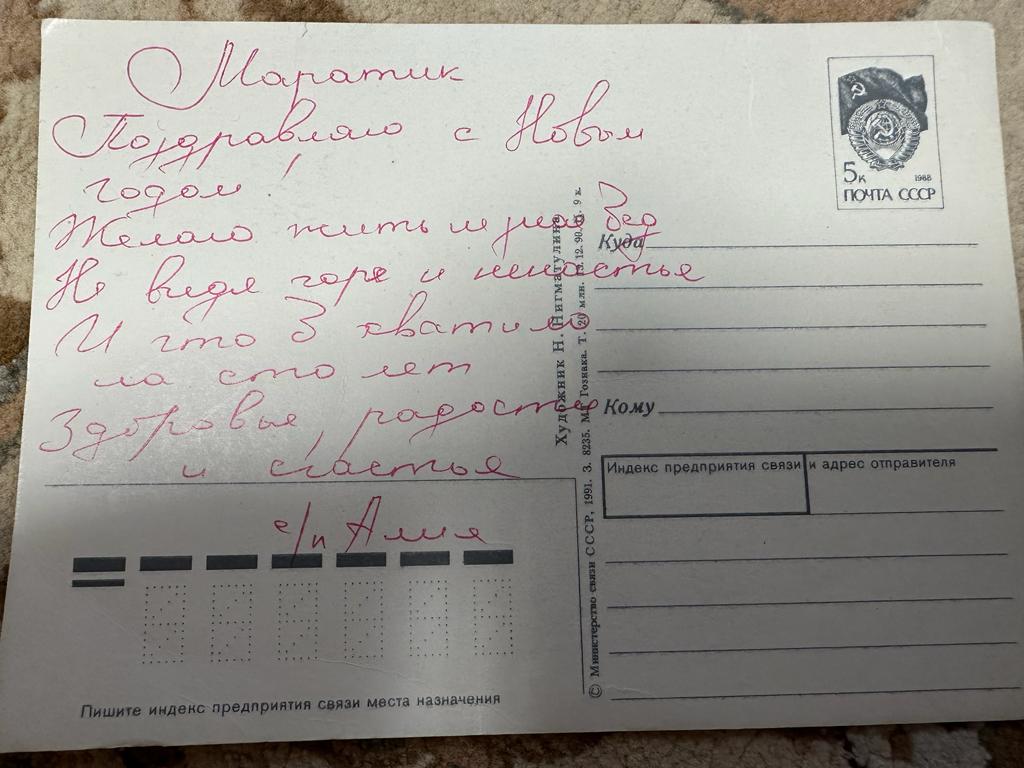 Маратик
Поздравляю с Новым
годом!
Желаю жить не зная бед
Не видя горя и ненастья
И что б хватило
на сто лет
Здоровье, радость
и счастья
с/п Алия
5к 1988
ПОЧТА СССР
Куда
Кому
Индекс предприятия связи и адрес отправителя
Пишите индекс предприятия связи места назначения
Художник Н. Нигматулина
© Министерство связи СССР, 1991. З. 8235. МТ Гознака. Т. 20 млн. 13.12.90. Ц. 9 к.